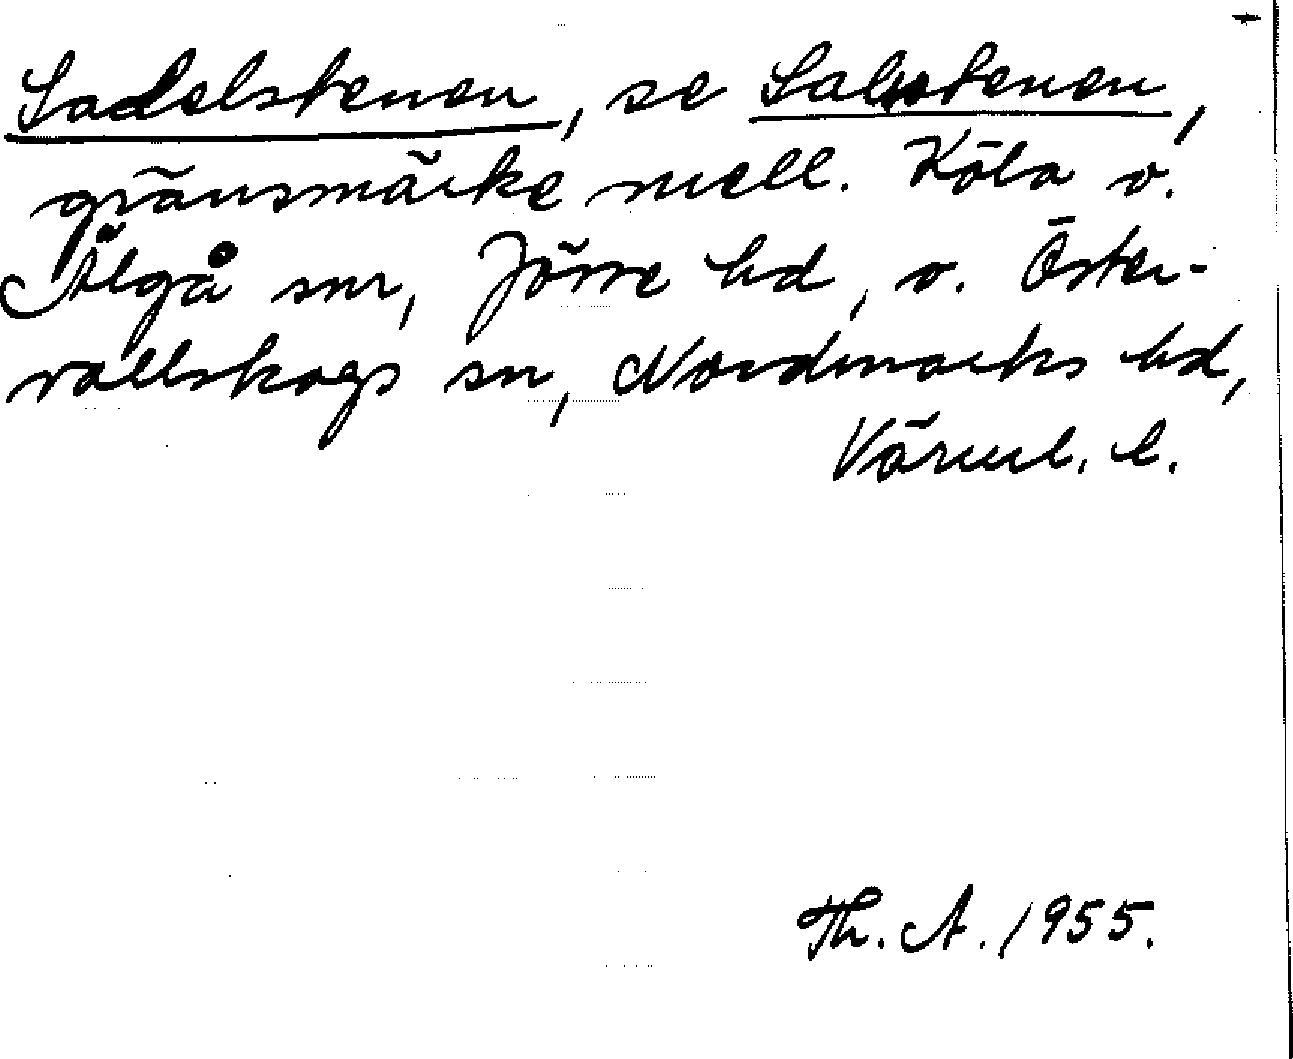 Sadelstenen, se Salstenen,
gränsmärke mell. Köla o.
Älgå snr, Jösse hd, o. Öster-
vallskogs sn, Nordmarks hd,
Värml. l.
Th. A. 1955.